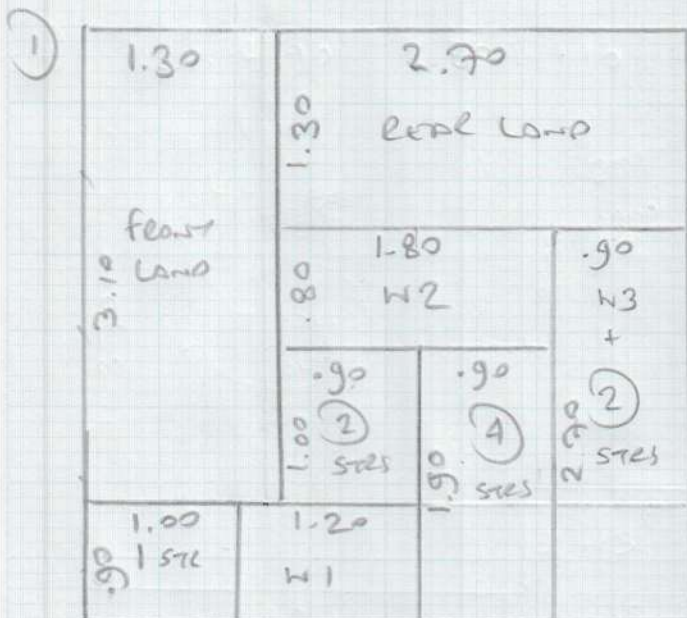 1
1.30
2.70
1.30
REAR LAND
FRONT
LAND
3.10
1.80
.80
W2
.90
W3
+
2
STRS
2.70
.90
1.00
2
STRS
.90
4
STRS
1.90
1.00
1 STR
.90
1.20
W1